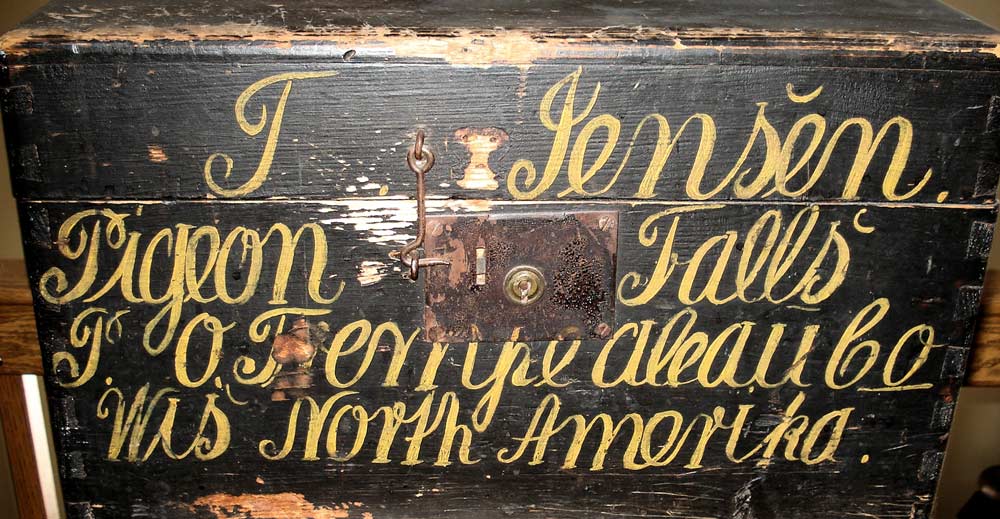 T Jensen.
Pigeon Falls
P. O. Tempealeau Co
Wis North Amerika.